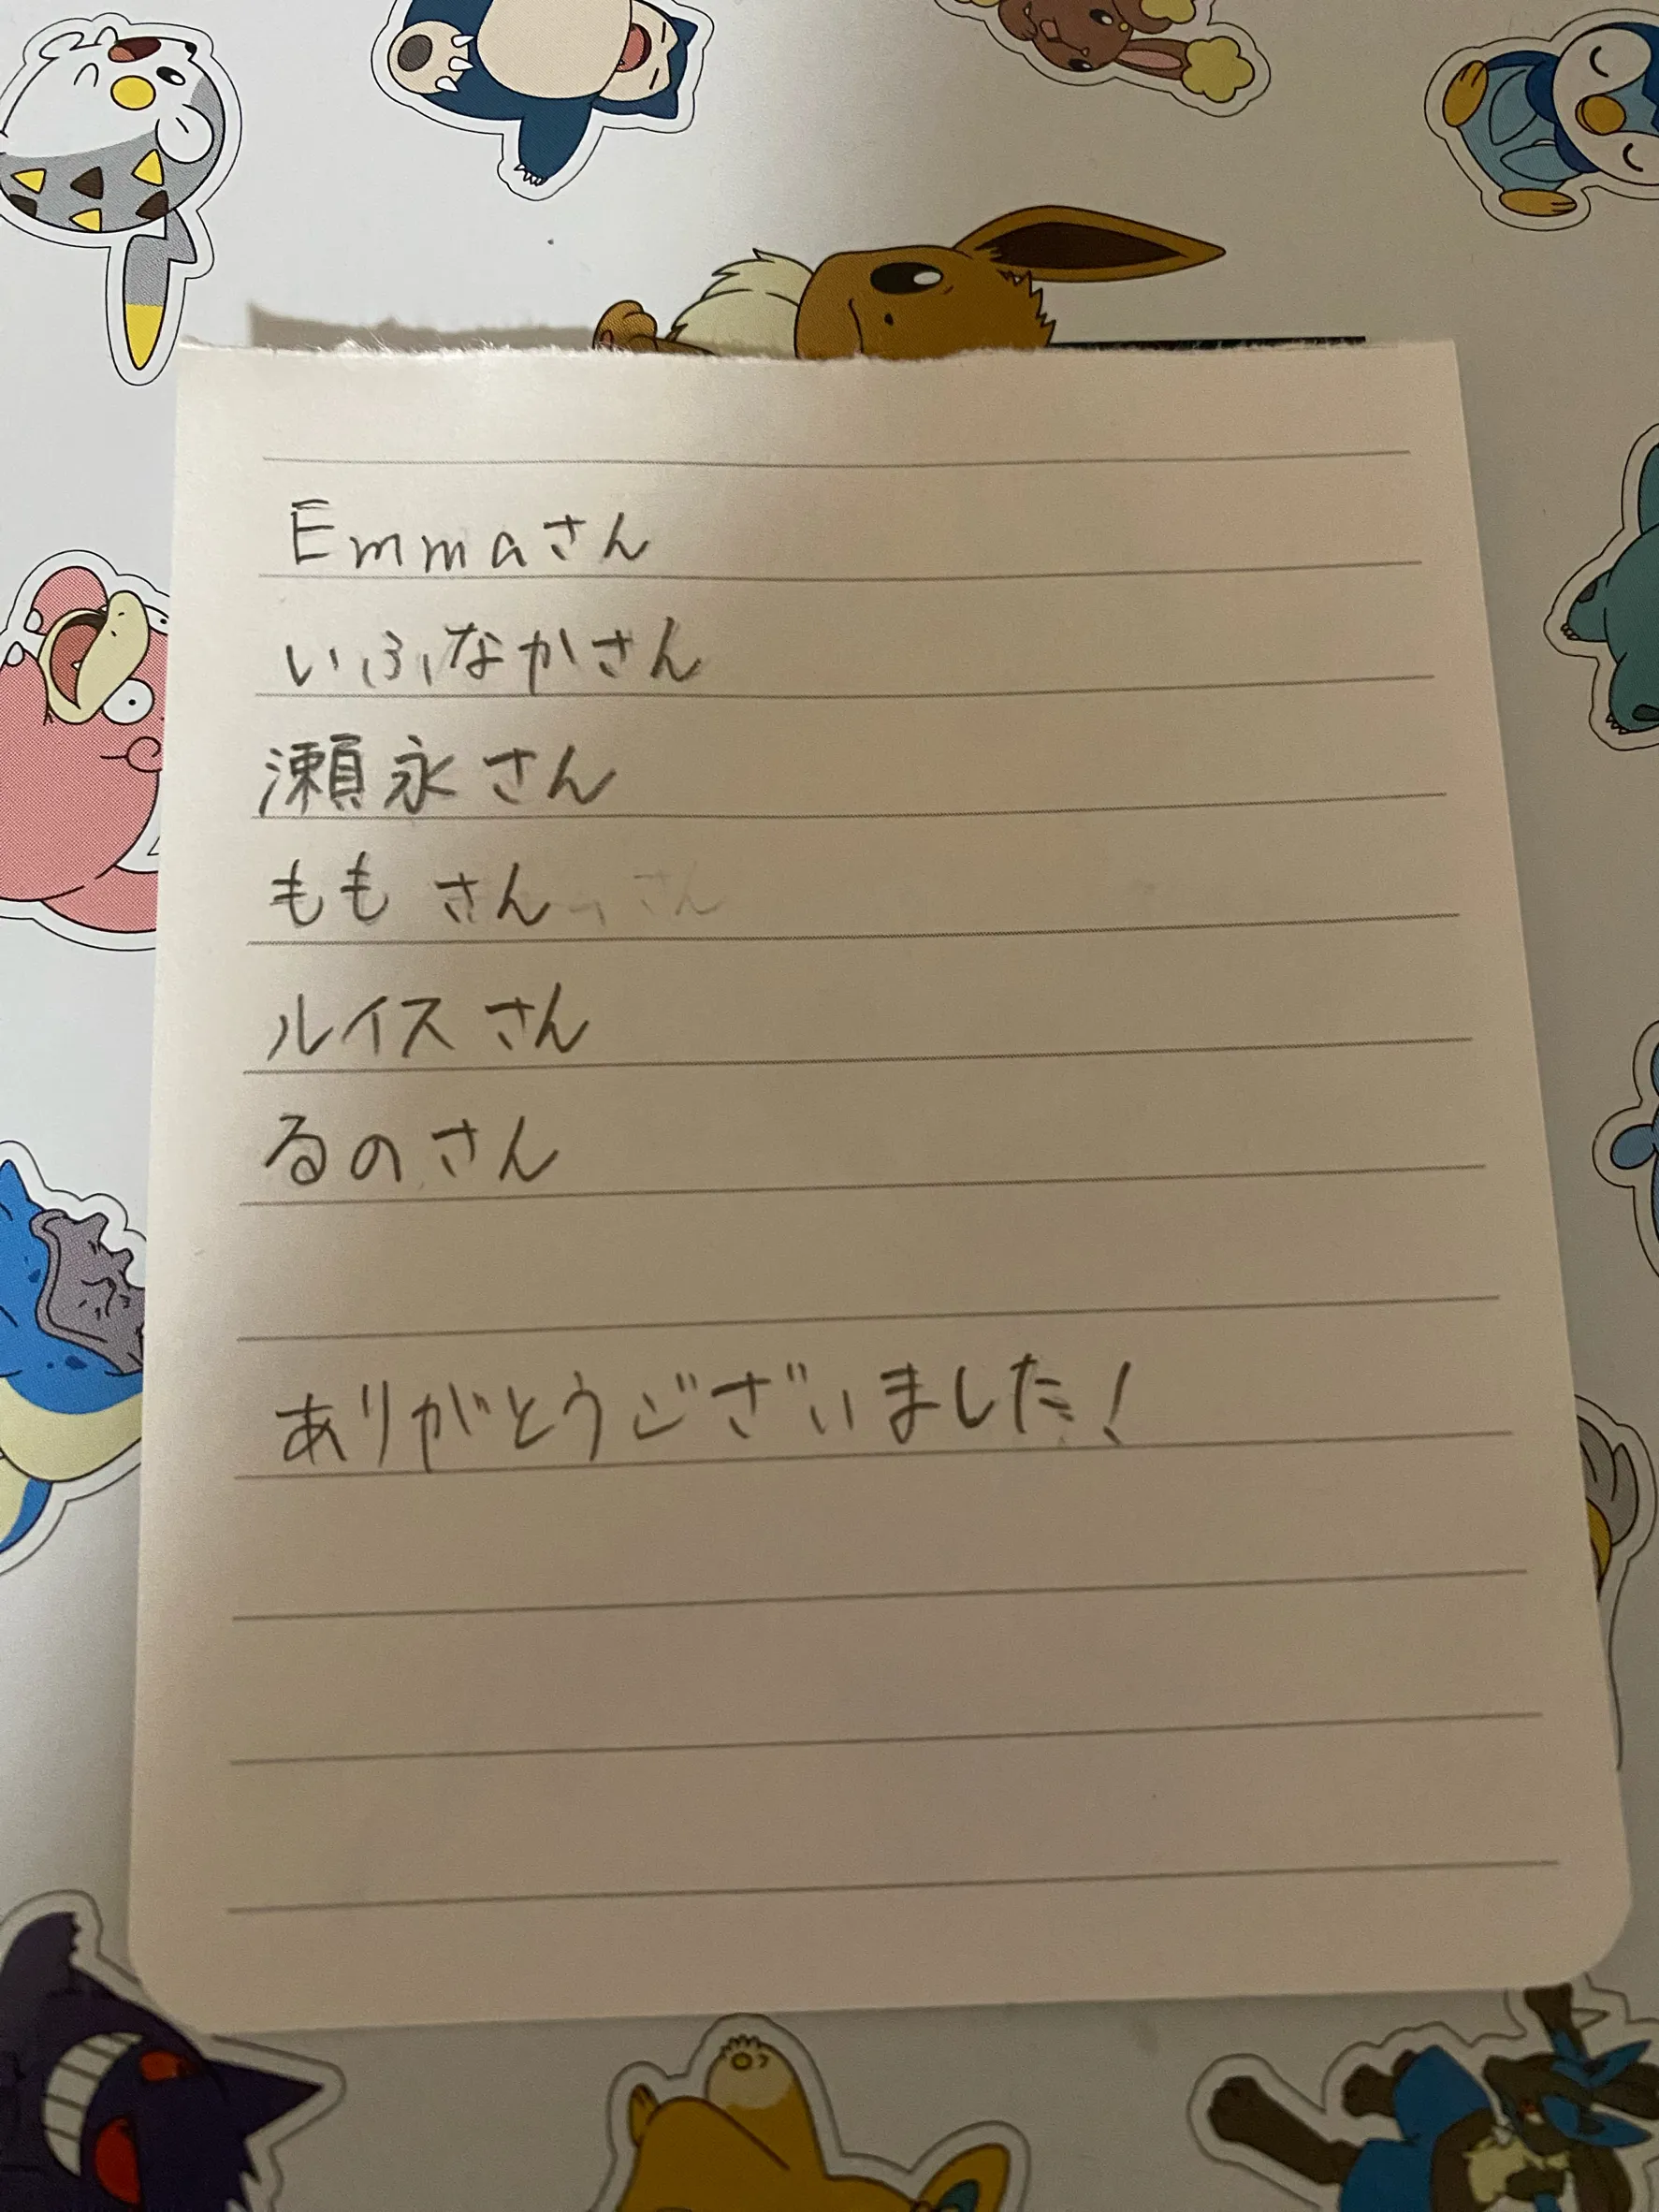 Emmaさん
いふなかさん
瀬永さん
ももさん
ルイスさん
るのさん
ありがとうございました!